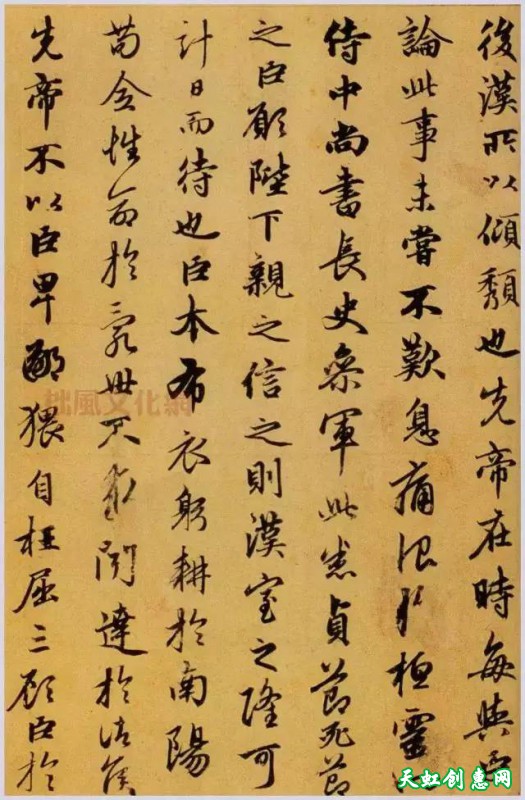 後漢所以傾頹也先帝在時每與臣
論此事未嘗不歎息痛恨於桓靈
侍中尚書長史參軍此悉貞節死節
之臣願陛下親之信之則漢室之隆可
計日而待也臣本布衣躬耕於南陽
苟全性命於亂世不求聞達於諸侯
先帝不以臣卑鄙猥自枉屈三顧臣於
拙風文化網
天虹创意网